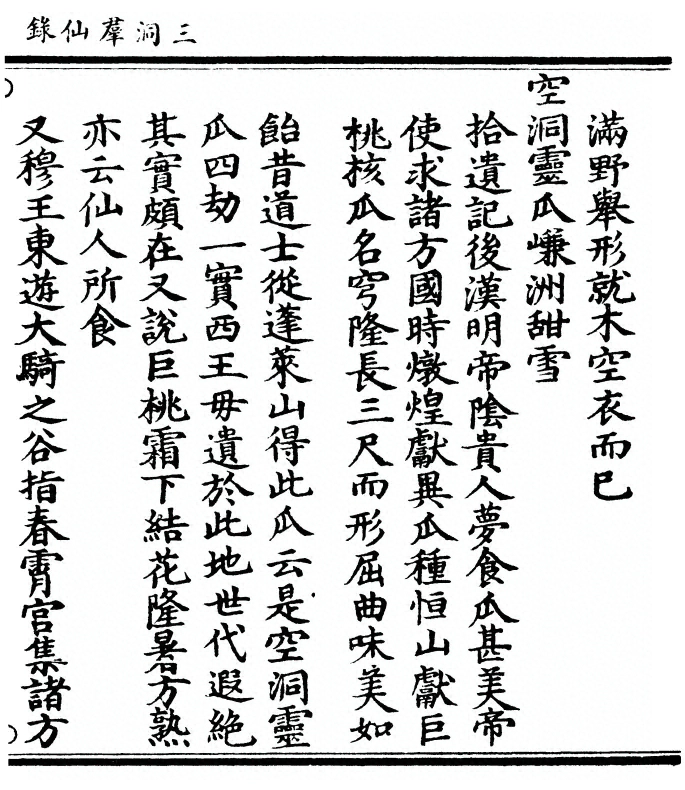 三洞羣仙錄
滿野舉形就木空衣而已
空洞靈瓜嵰洲甜雪
拾遺記後漢明帝陰貴人夢食瓜甚美帝
使求諸方國時燉煌獻異瓜種恒山獻巨
桃核瓜名穹隆長三尺而形屈曲味美如
飴昔道士從蓬萊山得此瓜云是空洞靈
瓜四劫一實西王毋遺於此地世代遐絶
其實頗在又說巨桃霜下結花隆暑方熟
亦云仙人所食
又穆王東遊大騎之谷指春霄宮集諸方